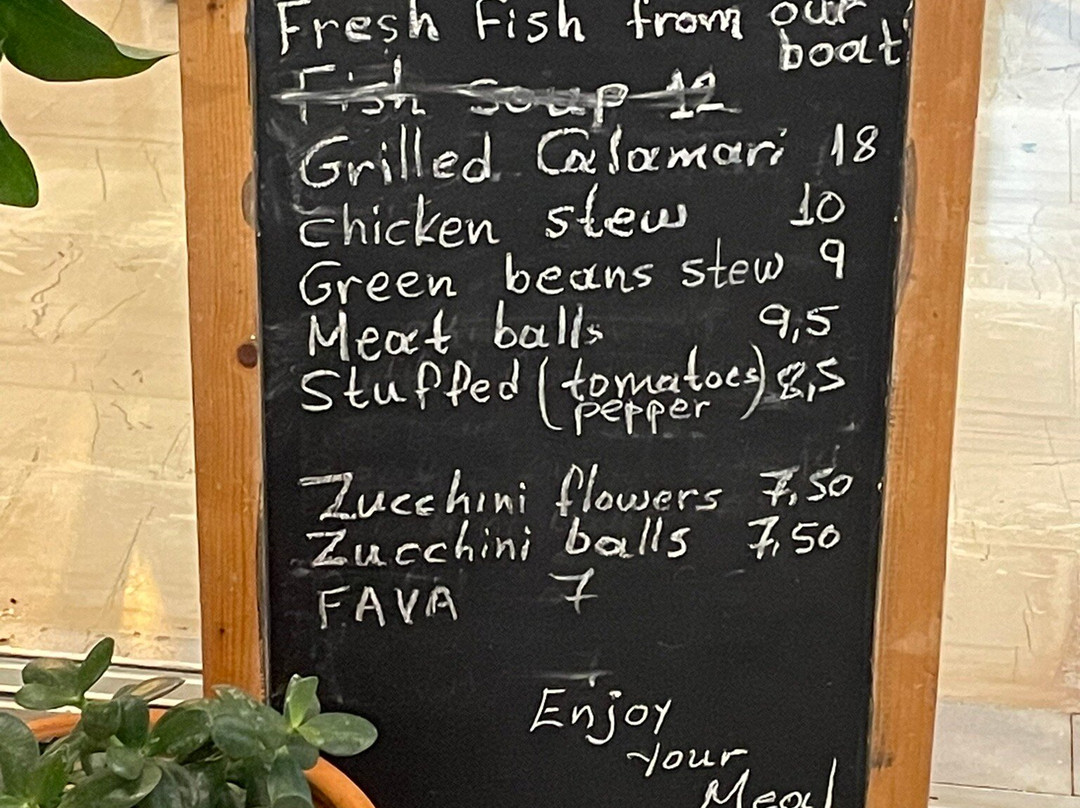 Fresh Fish from our
boat
Fish Soup 12
Grilled Calamari 18
chicken stew 10
Green beans stew 9
Meat balls 9,5
Stuffed (tomatoes) 8,5
pepper
Zucchini flowers 7,50
Zucchini balls 7,50
FAVA 7
Enjoy
your
Meal